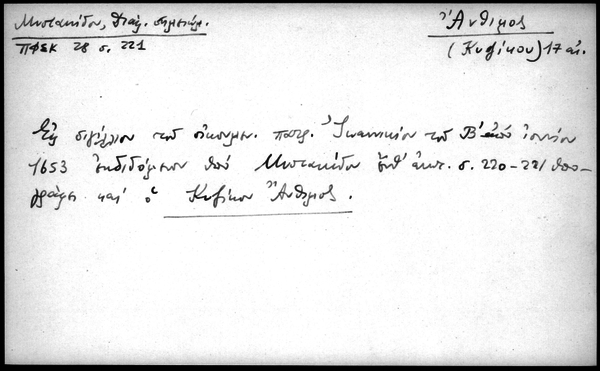 Μυστακίδου, Διάφ. σημειώμ.
ΠΦΣΚ 28 σ. 221
Ἄνθιμος
(Κυζίκου) 17 αι.
Εἰς σιγίλλιον τοῦ οἰκουμεν. πατρ. Ἰωαννικίου τοῦ Β' ἀπό ἰουνίου
1653 ἐκδιδόμενον ὑπό Μυστακίδου ἔνθ' ἀνωτ. σ. 220-221 ὑπο-
γράφει καί ὁ Κυζίκου Ἄνθιμος.